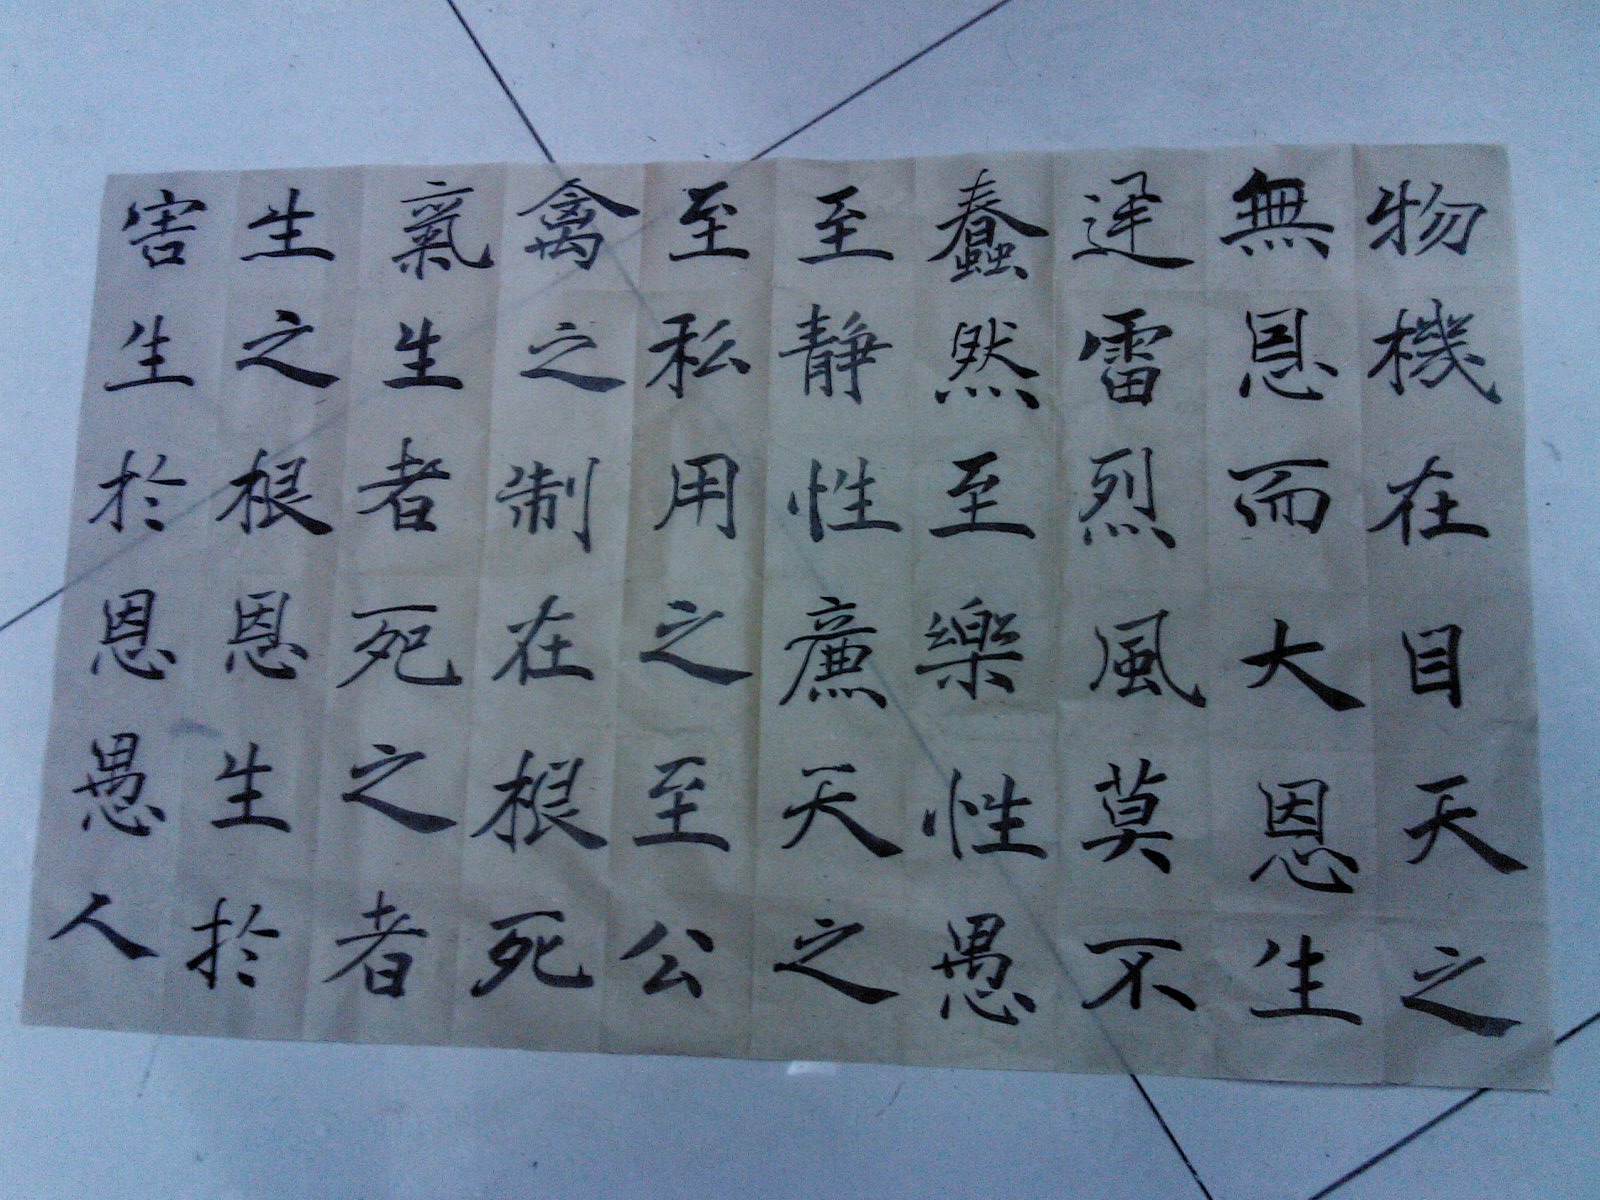 物機在目天之
無恩而大恩生
迅雷烈風莫不
蠢然至樂性愚
至静性廉天之
至私用之至公
禽之制在根死
氣生者死之者
生之根恩生於
害生於恩愚人